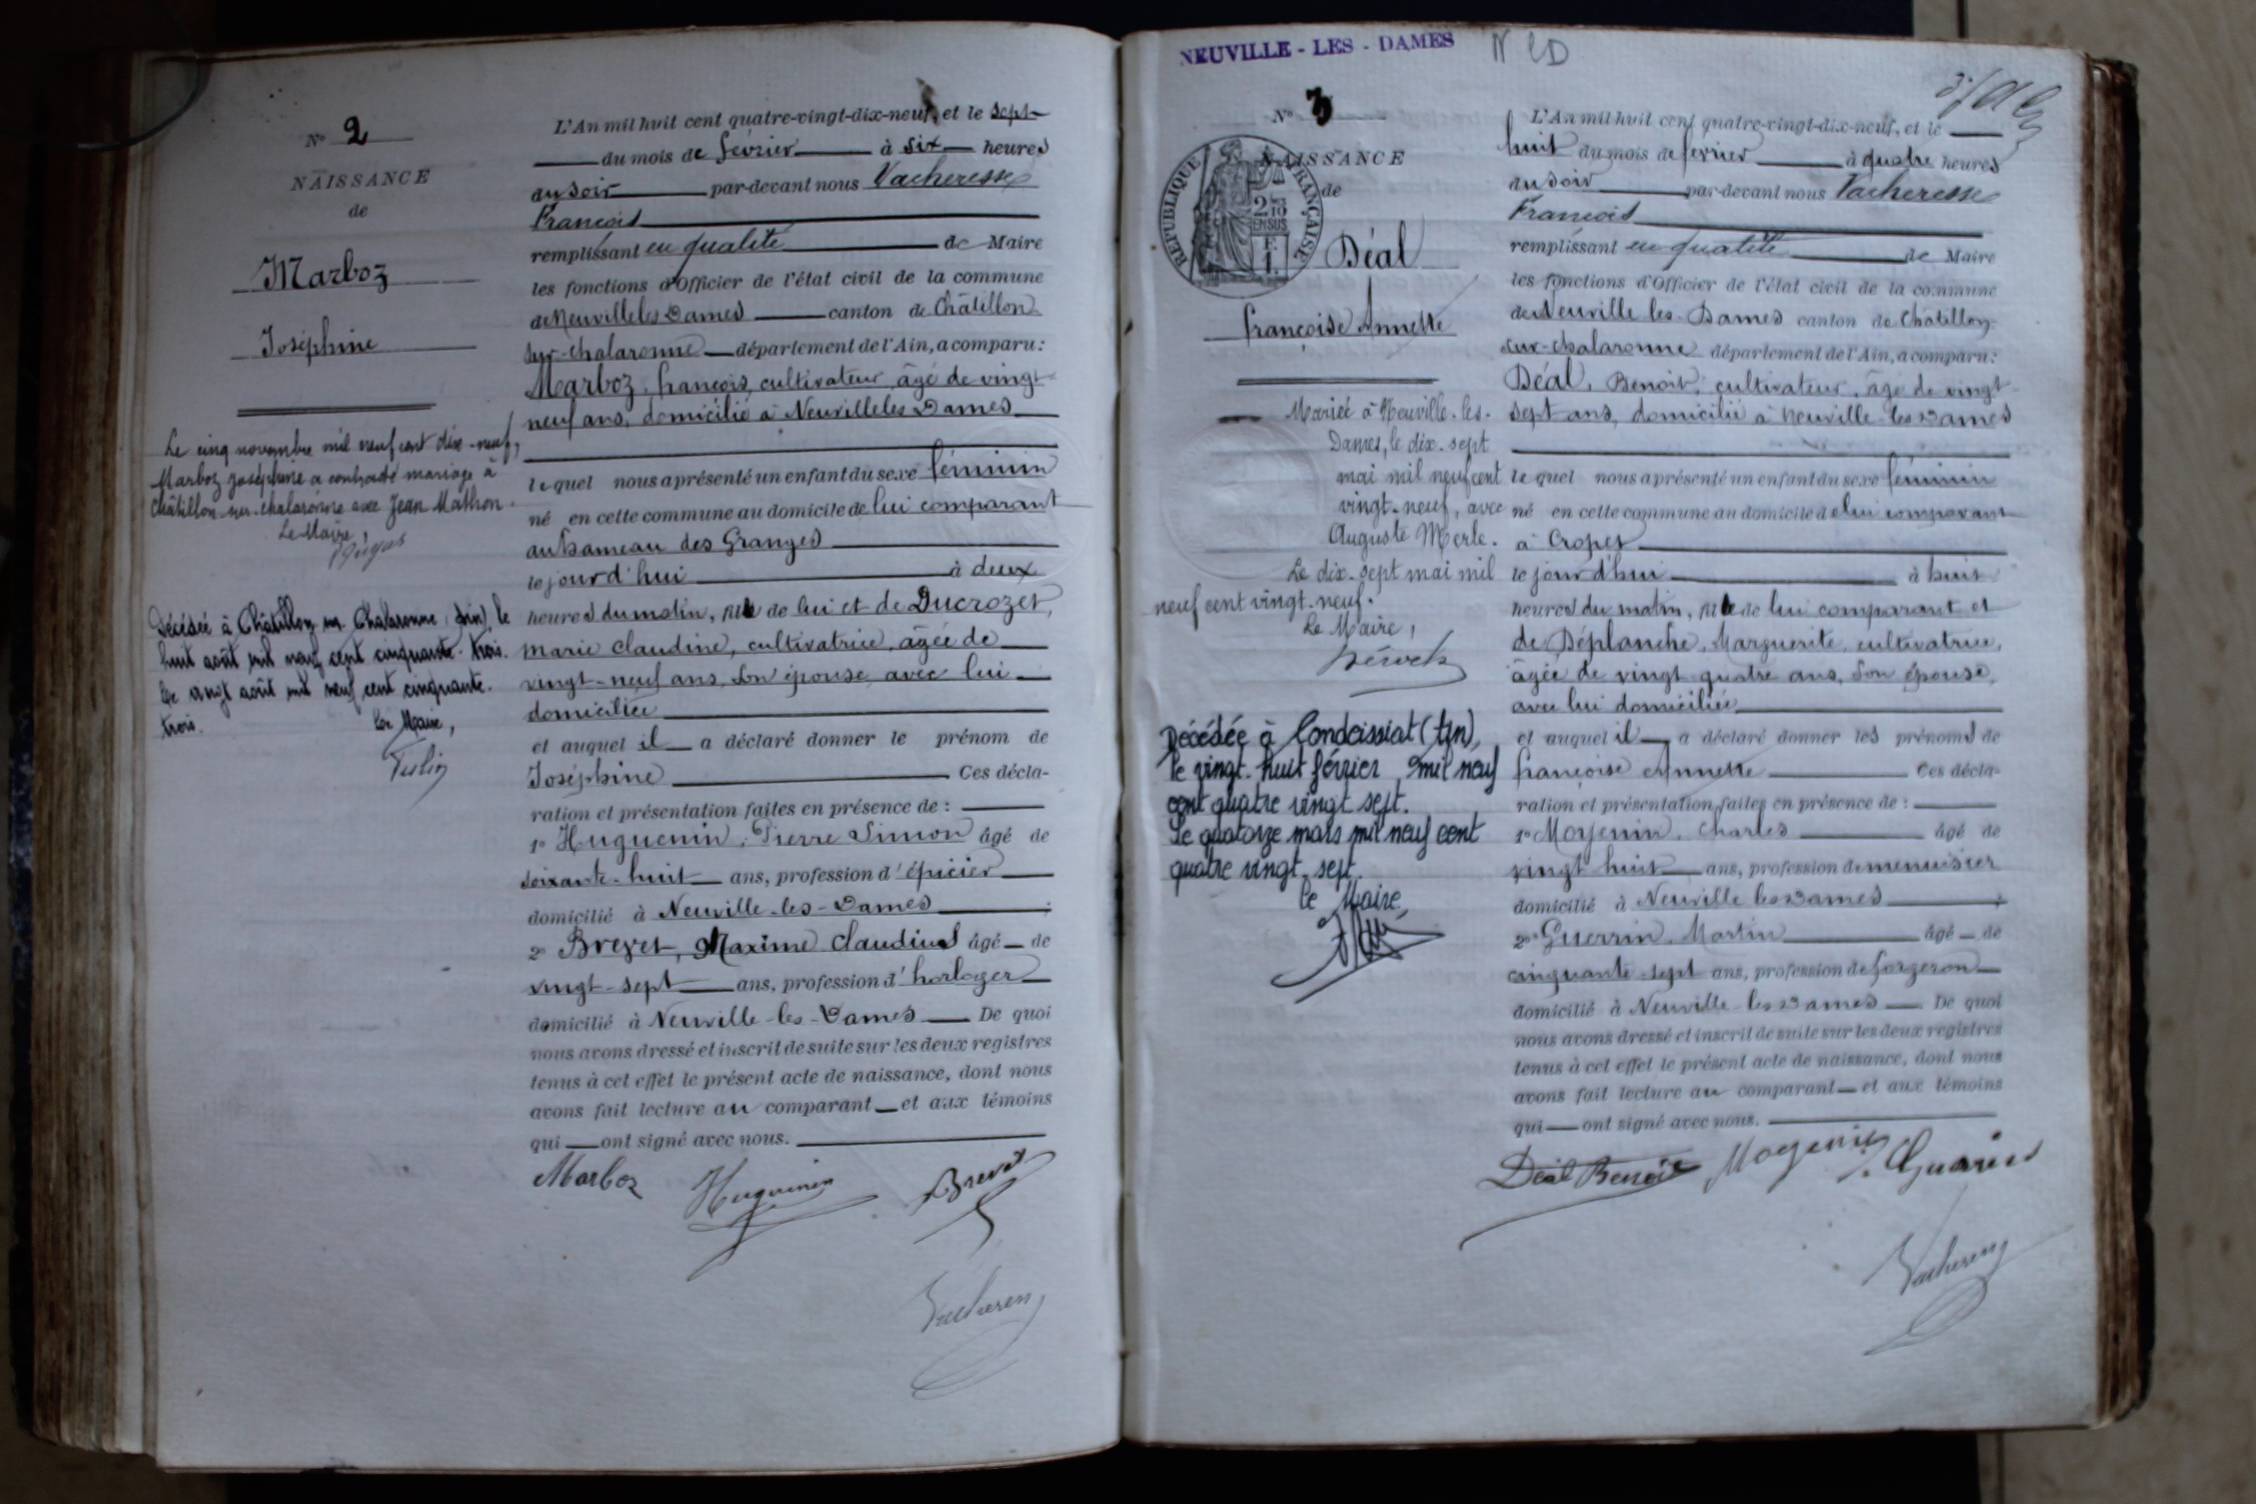 N° 2
NAISSANCE
de
Marboz
Joséphine
Le cinq novembre mil neuf cent dix-neuf,
Marboz Joséphine a contracté mariage à
Châtillon-sur-Chalaronne avec Jean Mathon.
Le Maire,
Décédée à Châtillon sur Chalaronne (Ain) le
huit août mil neuf cent cinquante-trois.
Le vingt août mil neuf cent cinquante.
trois.
Le Maire,
L'An mil huit cent quatre-vingt-dix-neuf, et le sept
du mois de février à six heures
du soir par-devant nous Vacheresse
François
remplissant en qualité de Maire
les fonctions d'Officier de l'état civil de la commune
de Neuville les Dames canton de Châtillon
sur-Chalaronne département de l'Ain, a comparu :
Marboz, françois, cultivateur, âgé de vingt
neuf ans, domicilié à Neuville les Dames
le quel nous a présenté un enfant du sexe féminin
né en cette commune au domicile de lui comparant
au hameau des Granges
le jourd'hui à deux
heures du matin, fille de lui et de Ducrozet,
marie claudine, cultivatrice, âgée de
vingt-neuf ans, son épouse, avec lui
domiciliée
et auquel il a déclaré donner le prénom de
Joséphine Ces décla-
ration et présentation faites en présence de :
1° Huguenin, Pierre Simon âgé de
soixante-huit ans, profession d'épicier
domicilié à Neuville-les-Dames ;
2° Brevet, Maxime Claudius âgé de
vingt-sept ans, profession d'horloger
domicilié à Neuville-les-Dames De quoi
nous avons dressé et inscrit de suite sur les deux registres
tenus à cet effet le présent acte de naissance, dont nous
avons fait lecture au comparant et aux témoins
qui ont signé avec nous.
Marboz Huguenin Brevet
NEUVILLE - LES - DAMES N LD
N° 3
NAISSANCE
de
RÉPUBLIQUE FRANÇAISE
Déal
françoise Annette
Mariée à Neuville-les-
Dames, le dix-sept
mai mil neuf cent
vingt-neuf, avec
Auguste Merle.
Le dix-sept mai mil
neuf cent vingt-neuf.
Le Maire,
Décédée à Condeissiat (Ain),
le vingt-huit février mil neuf
cent quatre vingt sept.
Le quatorze mars mil neuf cent
quatre vingt sept.
le Maire,
L'An mil huit cent quatre-vingt-dix-neuf, et le
huit du mois de février à quatre heures
du soir par-devant nous Vacheresse
François
remplissant en qualité de Maire
les fonctions d'Officier de l'état civil de la commune
de Neuville-les-Dames canton de Châtillon
sur-Chalaronne département de l'Ain, a comparu :
Déal, Benoit, cultivateur, âgé de vingt
sept ans, domicilié à Neuville-les-Dames
le quel nous a présenté un enfant du sexe féminin
né en cette commune au domicile de lui comparant
à Cropet
le jourd'hui à huit
heures du matin, fille de lui comparant et
de Déplanche, Marguerite, cultivatrice,
âgée de vingt quatre ans, son épouse,
avec lui domiciliée
et auquel il a déclaré donner les prénoms de
françoise Annette Ces décla-
ration et présentation faites en présence de :
1° Moyenin, Charles âgé de
vingt huit ans, profession de menuisier
domicilié à Neuville les Dames ;
2° Guerrin, Martin âgé de
cinquante-sept ans, profession de forgeron
domicilié à Neuville-les-Dames De quoi
nous avons dressé et inscrit de suite sur les deux registres
tenus à cet effet le présent acte de naissance, dont nous
avons fait lecture au comparant et aux témoins
qui ont signé avec nous.
Déal Benoit